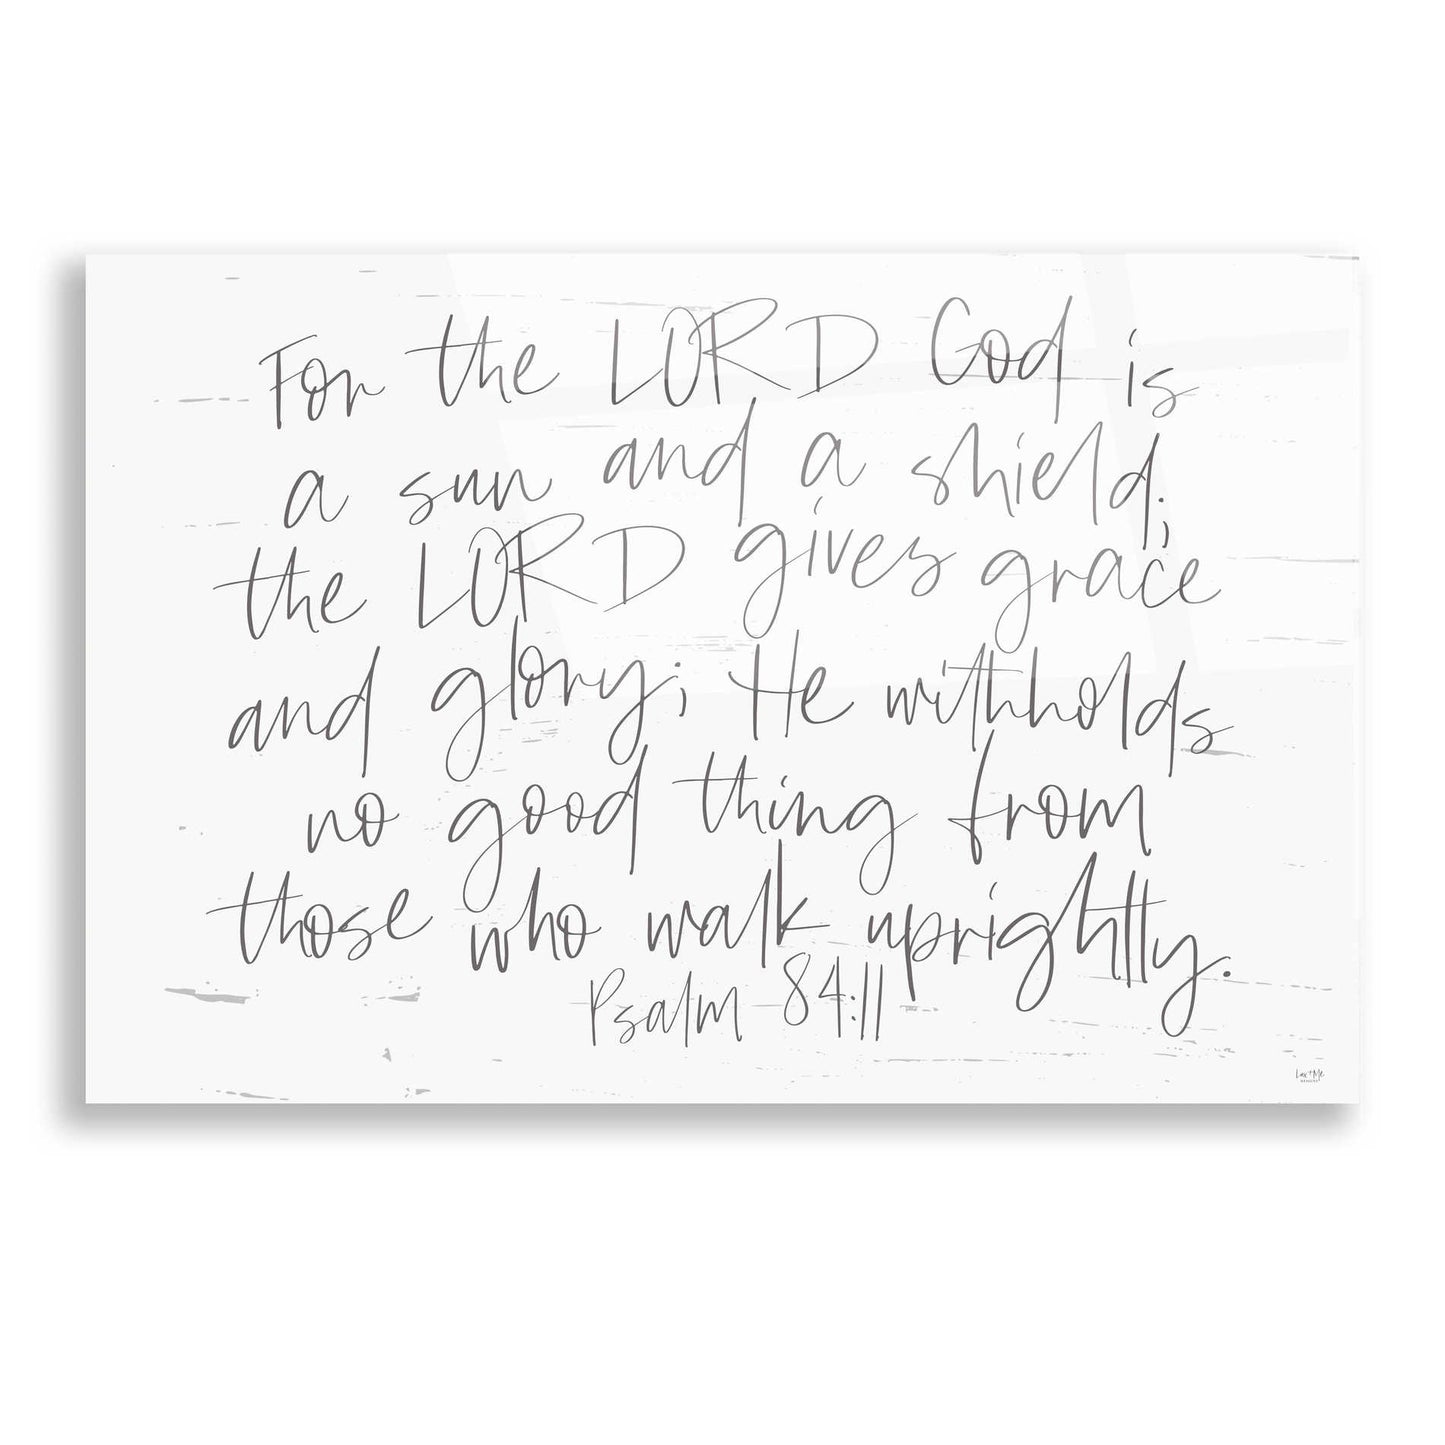 For the LORD God is
a sun and a shield;
the LORD gives grace
and glory; He withholds
no good thing from
those who walk uprightly.
Psalm 84:11
Lux + Me
DESIGNS